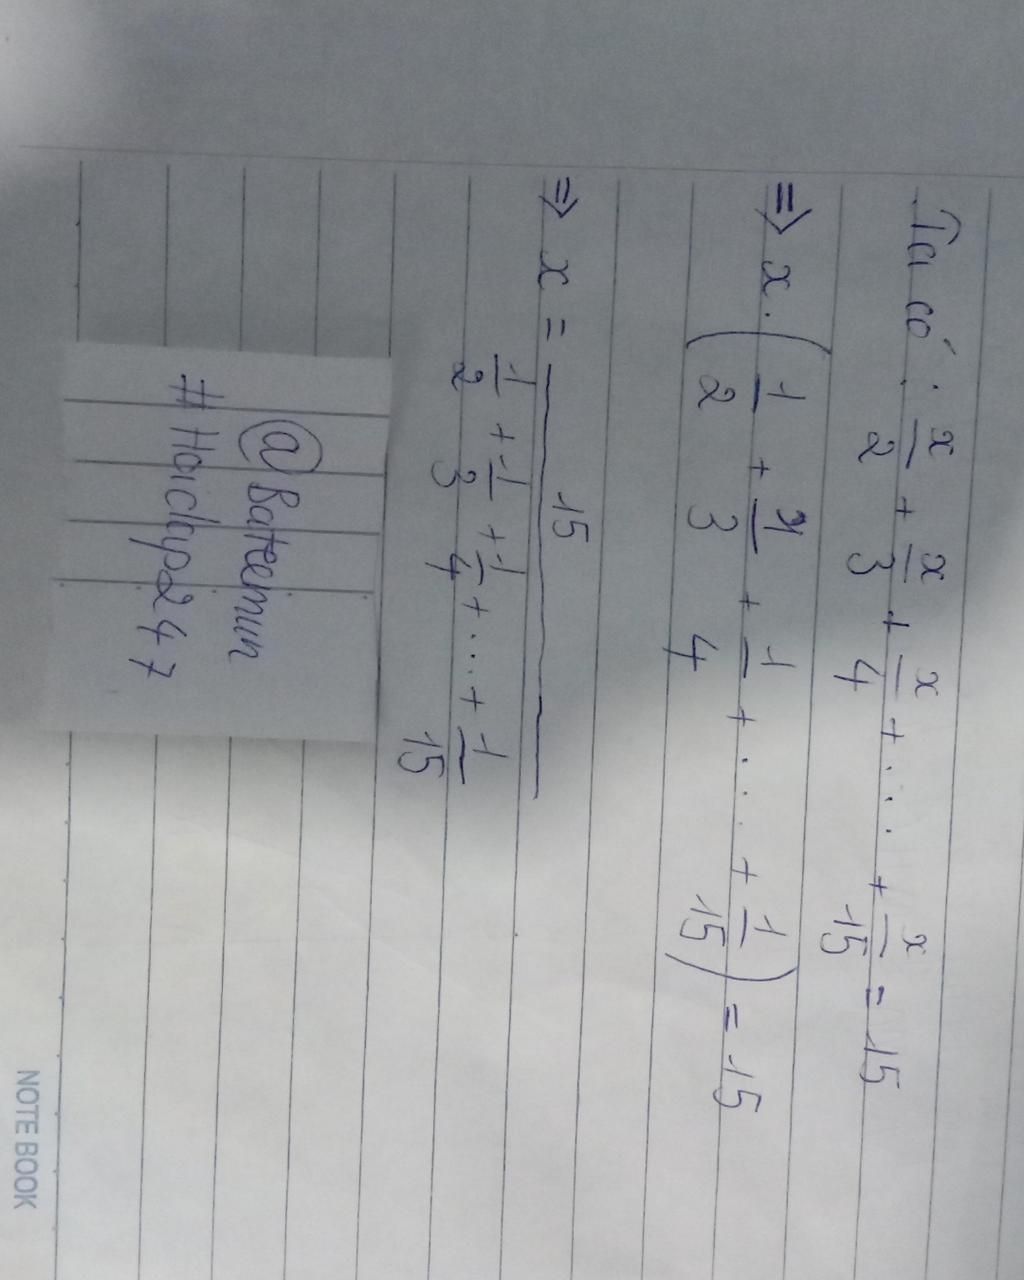 Ta có: x/2 + x/3 + x/4 + ... + x/15 = 15
=> x. (1/2 + 1/3 + 1/4 + ... + 1/15) = 15
=> x = 15 / (1/2 + 1/3 + 1/4 + ... + 1/15)
@Bateemun
#Hoidap247
NOTE BOOK